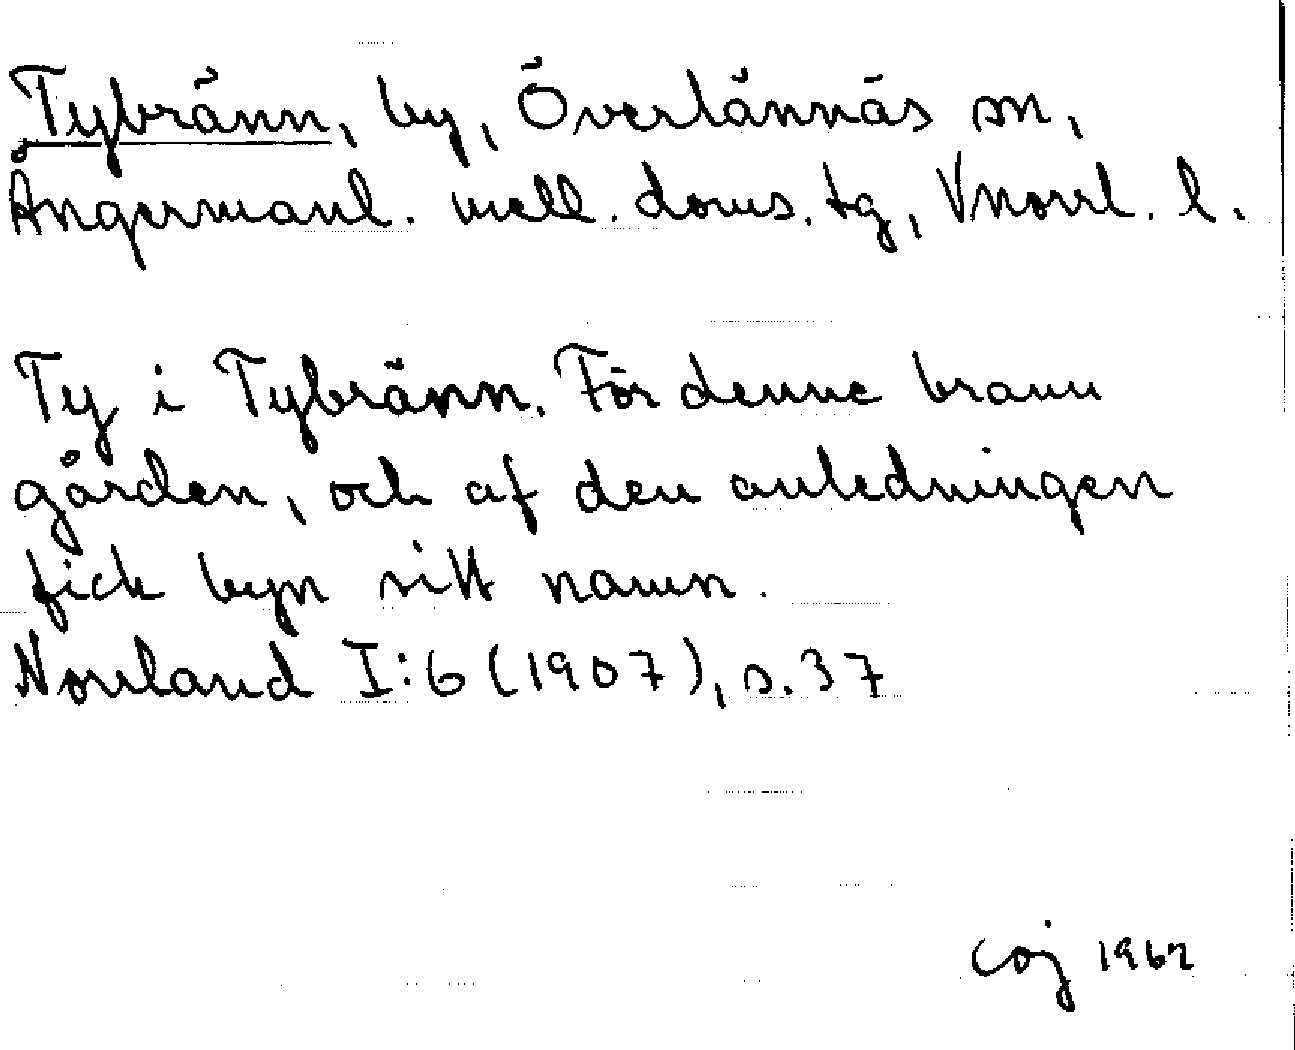 Tybränn, by, Överlännäs sn,
Ångermanl. mell. doms. tg, Vnorrl. l.
Ty i Tybränn. För denne brann
gården, och af den anledningen
fick byn sitt namn.
Norrland I:6 (1907), s. 37
Coj 1962